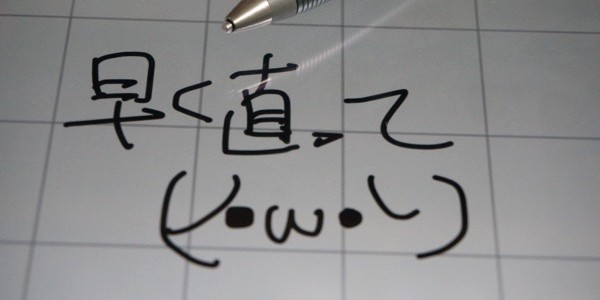 早く直って
(´•ω•`)